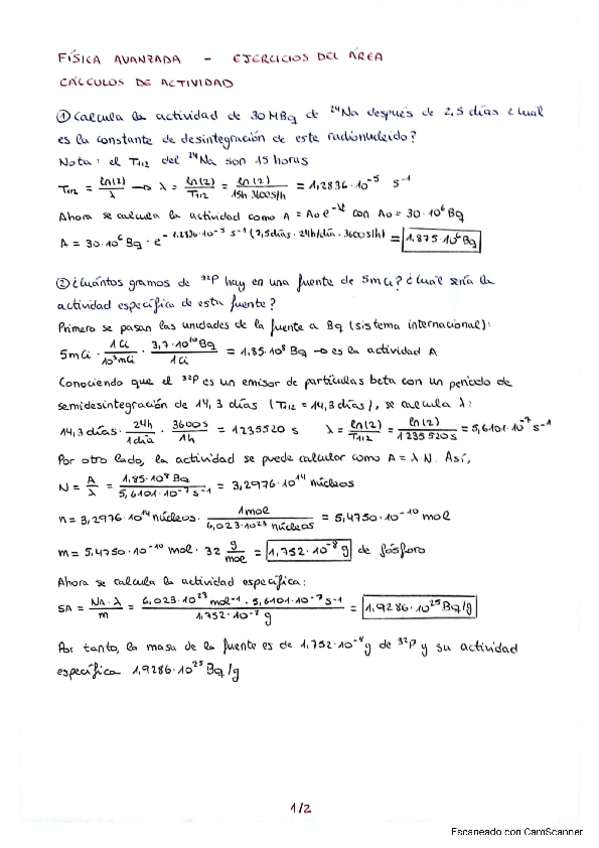 FÍSICA AVANZADA - EJERCICIOS DEL ÁREA
CÁLCULOS DE ACTIVIDAD
① Calcula la actividad de 30 MBq de ²⁴Na después de 2,5 días ¿Cuál
es la constante de desintegración de este radionucleido?
Nota: el T1/2 del ²⁴Na son 15 horas
T1/2 = ln(2)/λ → λ = ln(2)/T1/2 = ln(2)/15h·3600s/h = 1,2836·10⁻⁵ s⁻¹
Ahora se calcula la actividad como A = A₀ e^-λt con A₀ = 30·10⁶ Bq
A = 30·10⁶ Bq · e^-1.2836·10⁻⁵ s⁻¹ (2,5días·24h/día·3600s/h) = 1,875·10⁶ Bq
② ¿Cuántos gramos de ³²P hay en una fuente de 5mCi? ¿Cuál sería la
actividad específica de esta fuente?
Primero se pasan las unidades de la fuente a Bq (sistema internacional):
5mCi · 1Ci/10³mCi · 3,7·10¹⁰Bq/1Ci = 1,85·10⁸ Bq → es la actividad A
Conociendo que el ³²P es un emisor de partículas beta con un periodo de
semidesintegración de 14,3 días (T1/2 = 14,3 días), se calcula λ:
14,3 días · 24h/1día · 3600s/1h = 1235520 s λ = ln(2)/T1/2 = ln(2)/1235520s = 5,6101·10⁻⁷ s⁻¹
Por otro lado, la actividad se puede calcular como A = λ·N. Así,
N = A/λ = 1,85·10⁸ Bq/5,6101·10⁻⁷ s⁻¹ = 3,2976·10¹⁴ núcleos
n = 3,2976·10¹⁴ núcleos · 1mol/6,023·10²³ núcleos = 5,4750·10⁻¹⁰ mol
m = 5,4750·10⁻¹⁰ mol · 32 g/mol = 1,752·10⁻⁸ g de fósforo
Ahora se calcula la actividad específica:
SA = NA·λ/m = 6,023·10²³ mol⁻¹ · 5,6101·10⁻⁷ s⁻¹/1,752·10⁻⁸ g = 1,9286·10²⁵ Bq/g
Por tanto, la masa de la fuente es de 1,752·10⁻⁸ g de ³²P y su actividad
específica 1,9286·10²⁵ Bq/g
1/2
Escaneado con CamScanner